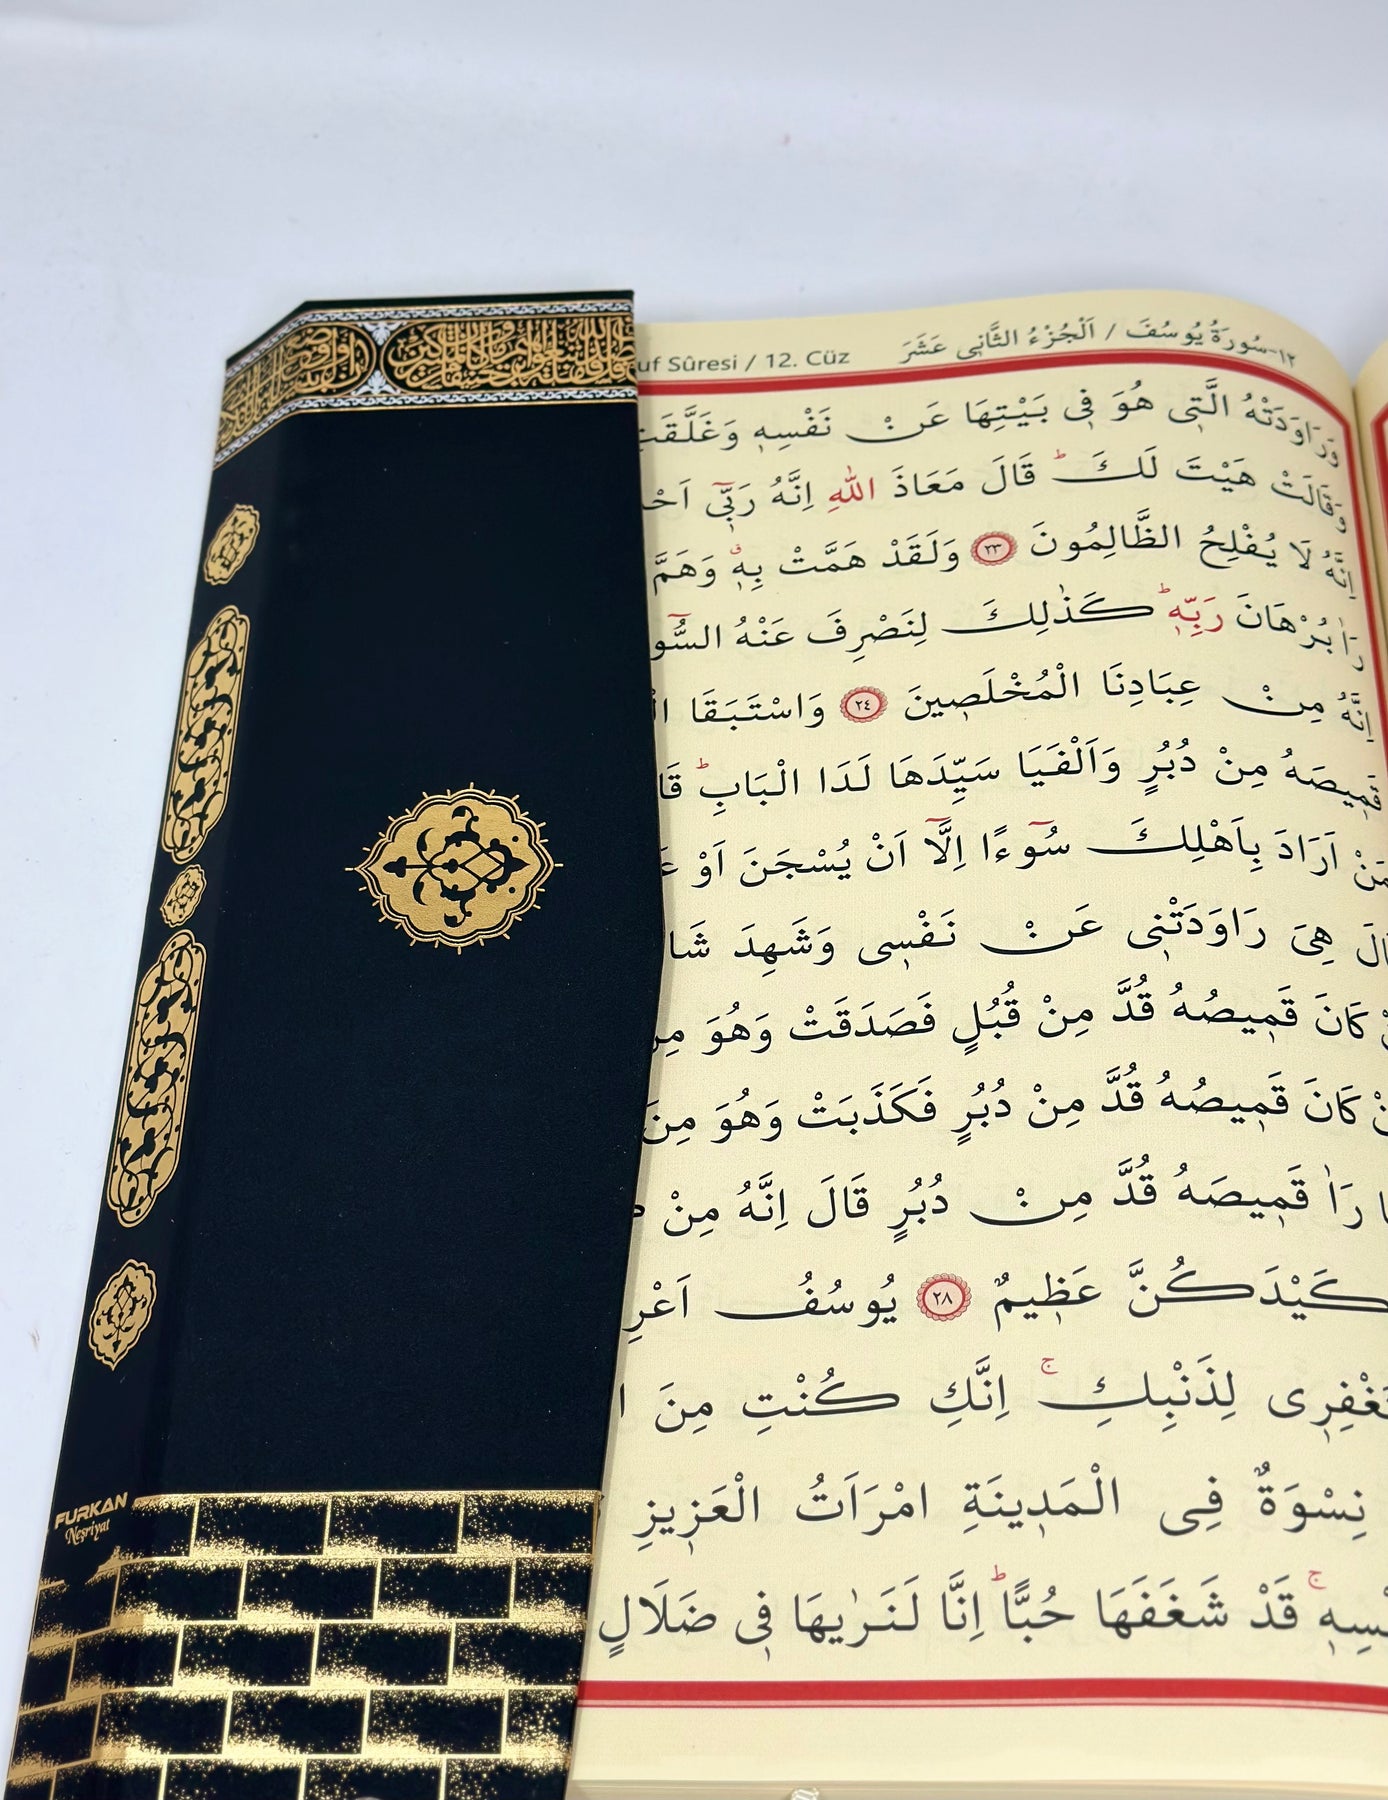 ١٢-سُورَةُ يُوسُفَ / اَلْجُزْءُ الثَّانِى عَشَرَ
uf Sûresi / 12. Cüz
وَرَاوَدَتْهُ الَّتِى هُوَ فِى بَيْتِهَا عَنْ نَفْسِهِ وَغَلَّقَتِ
وَقَالَتْ هَيْتَ لَكَ ط قَالَ مَعَاذَ اللّٰهِ اِنَّهُ رَبِّٓى اَحْ
اِنَّهُ لَا يُفْلِحُ الظَّالِمُونَ ٢٣ وَلَقَدْ هَمَّتْ بِهِ وَهَمَّ
رَاٰ بُرْهَانَ رَبِّهِ ط كَذٰلِكَ لِنَصْرِفَ عَنْهُ السُّٓو
اِنَّهُ مِنْ عِبَادِنَا الْمُخْلَصِينَ ٢٤ وَاسْتَبَقَا الْ
قَمِيصَهُ مِنْ دُبُرٍ وَاَلْفَيَا سَيِّدَهَا لَدَا الْبَابِ ط قَا
مَنْ اَرَادَ بِاَهْلِكَ سُٓوءًا اِلَّٓا اَنْ يُسْجَنَ اَوْ عَ
الَ هِىَ رَاوَدَتْنِى عَنْ نَفْسِى وَشَهِدَ شَا
كَانَ قَمِيصُهُ قُدَّ مِنْ قُبُلٍ فَصَدَقَتْ وَهُوَ مِنَ
نْ كَانَ قَمِيصُهُ قُدَّ مِنْ دُبُرٍ فَكَذَبَتْ وَهُوَ مِنَ
ا رَاٰ قَمِيصَهُ قُدَّ مِنْ دُبُرٍ قَالَ اِنَّهُ مِنْ كَ
كَيْدَكُنَّ عَظِيمٌ ٢٨ يُوسُفُ اَعْرِ
تَغْفِرِى لِذَنْبِكِ ج اِنَّكِ كُنْتِ مِنَ ا
نِسْوَةٌ فِى الْمَدِينَةِ امْرَاَتُ الْعَزِيزِ
فْسِهِ ج قَدْ شَغَفَهَا حُبًّا ط اِنَّا لَنَرٰيهَا فِى ضَلَالٍ
FURKAN
Neşriyat